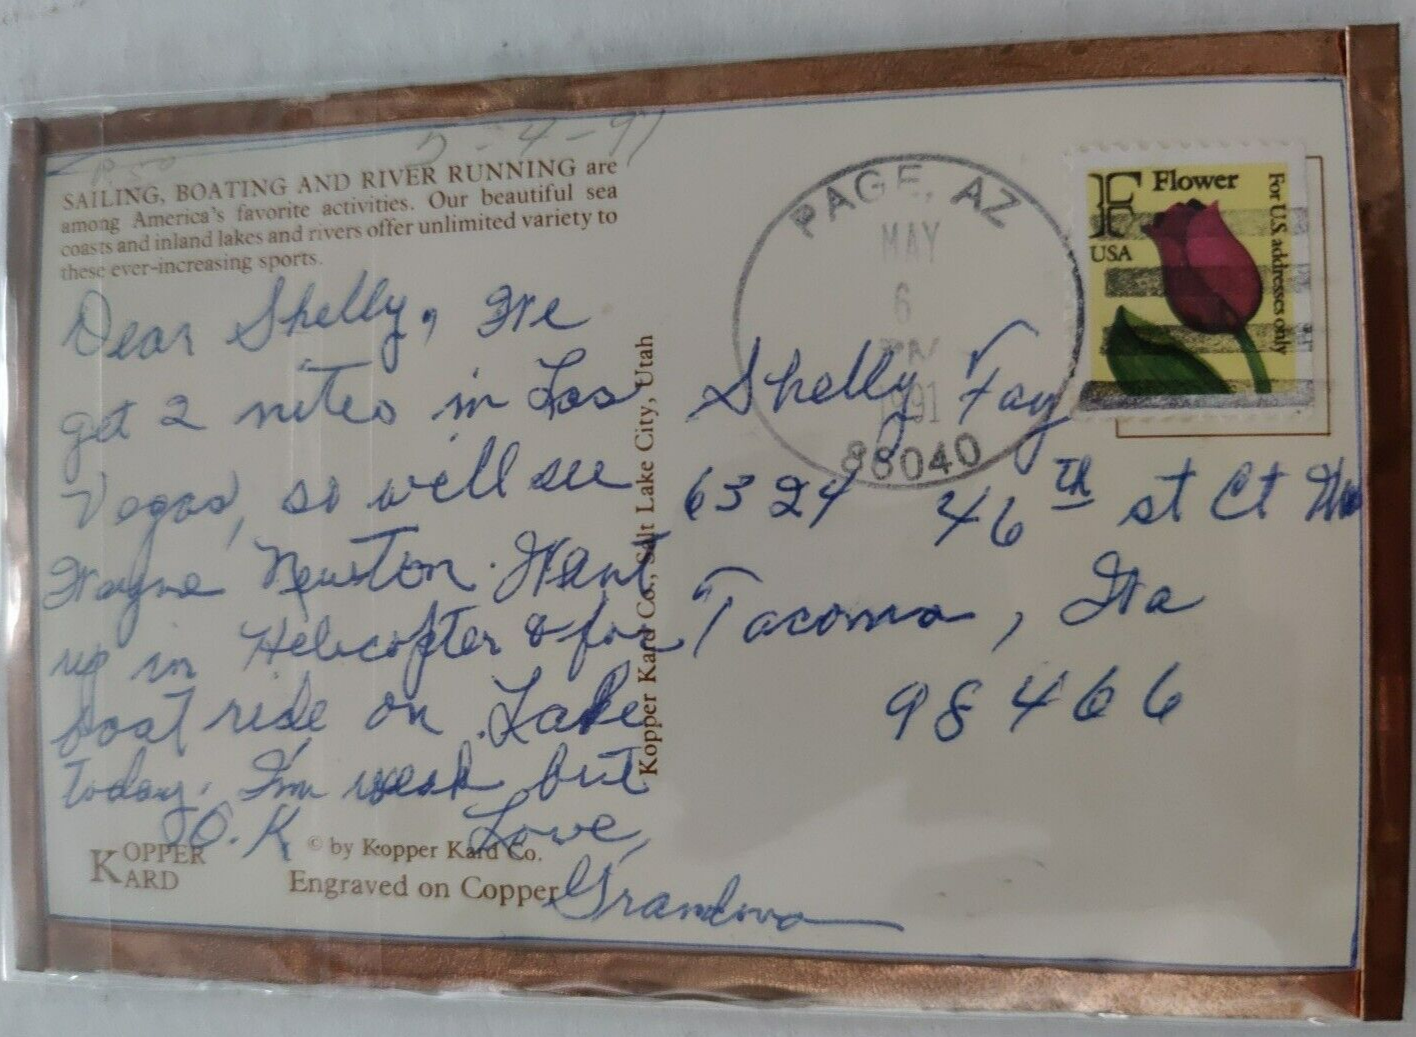 5-4-91
SAILING, BOATING AND RIVER RUNNING are
among America's favorite activities. Our beautiful sea
coasts and inland lakes and rivers offer unlimited variety to
these ever-increasing sports.
Dear Shelly, We
get 2 nites in Las
Vegas, so we'll see
Wayne Newton. Went
up in Helicopter & for
boat ride on Lake
today. I'm weak but
O.K Love,
Grandma
KOPPER
KARD
© by Kopper Kard Co.
Engraved on Copper
Kopper Kard Co., Salt Lake City, Utah
PAGE, AZ
MAY
6
PM
1991
86040
F Flower
USA
For U.S. addresses only
Shelly Fay
6324 46th st Ct W
Tacoma, Wa
98466